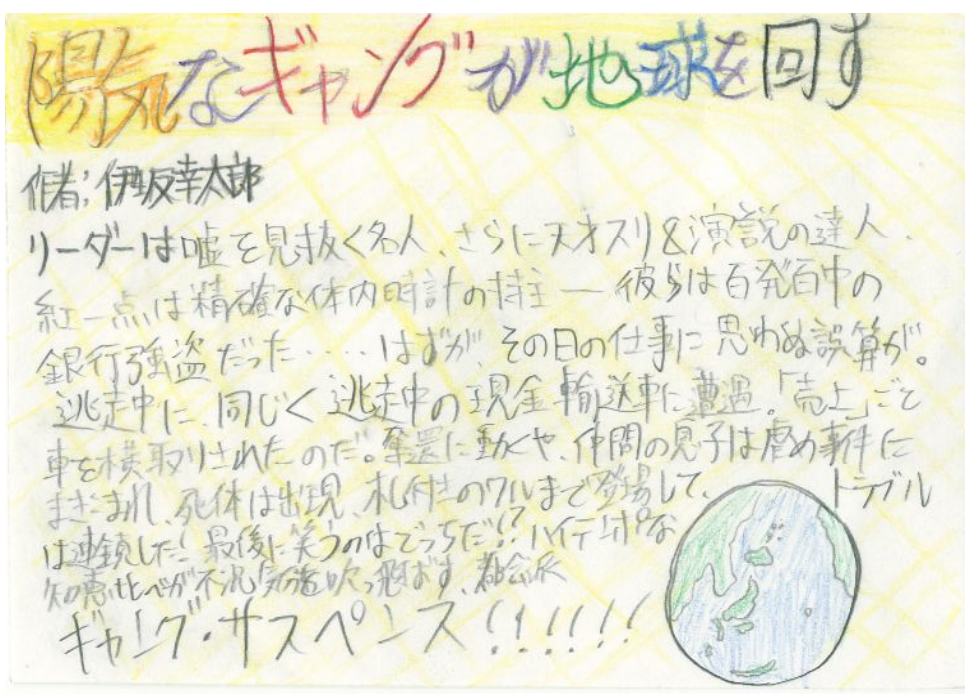 陽気なギャングが地球を回す
作者：伊坂幸太郎
リーダーは嘘を見抜く名人、さらに天才スリ&演説の達人、
紅一点は精確な体内時計の持主 ― 彼らは百発百中の
銀行強盗だった‥‥はずが、その日の仕事に思わぬ誤算が。
逃走中に、同じく逃走中の現金輸送車に遭遇。「売上」ごと
車を横取りされたのだ。奪還に動くや、仲間の息子は虐め事件に
まきまれ、死体は出現、札付きのワルまで登場して、トラブル
は連鎖した! 最後に笑うのはどっちだ!? ハイテンポな
知恵比べが不況気分を吹っ飛ばす、都会派
ギャング・サスペンス!!!!!!